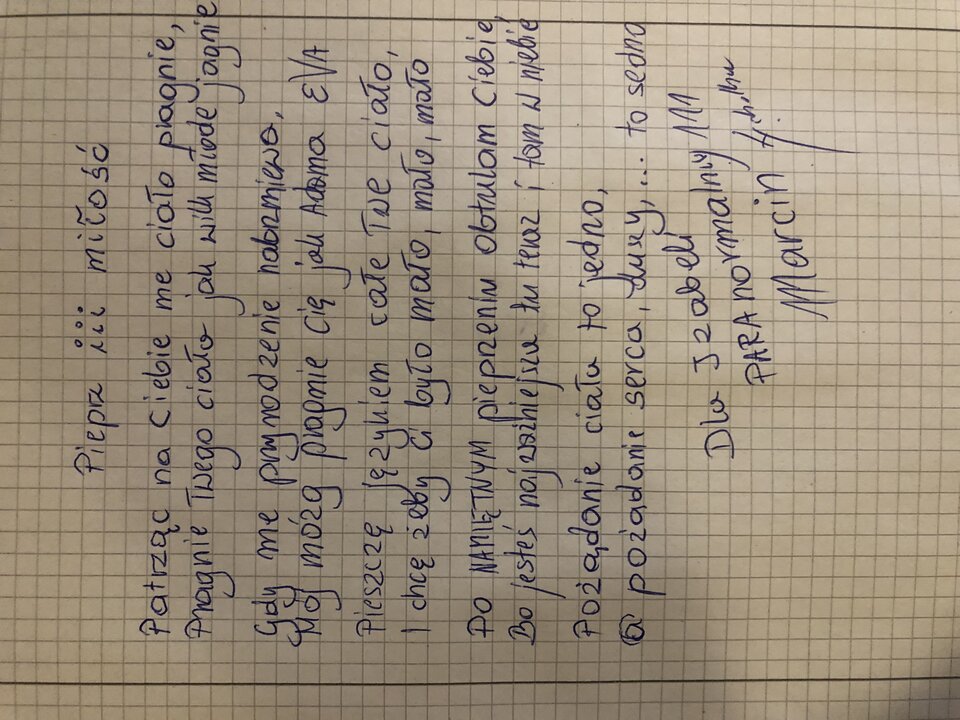 Piepsz iii miłość
Patrząc na Ciebie me ciało pragnie,
Pragnie Twego ciała jak wilk młode jagnie
Gdy me przyrodzenie nabrzmiewa,
Mój mózg pragnie Cię jak Adama EVA
Pieszczę językiem całe TWE ciało,
I chcę żeby Ci było mało, mało, mało, mało
Po NAMIĘTNYM pieprzeniu obtulam Ciebie,
Bo jesteś najważniejsza tu teraz i tam w niebie
Pożądanie ciała to jedno,
a pożądanie serca, duszy,... to sedno
Dla Izabeli
PARAnormalny
Marcin